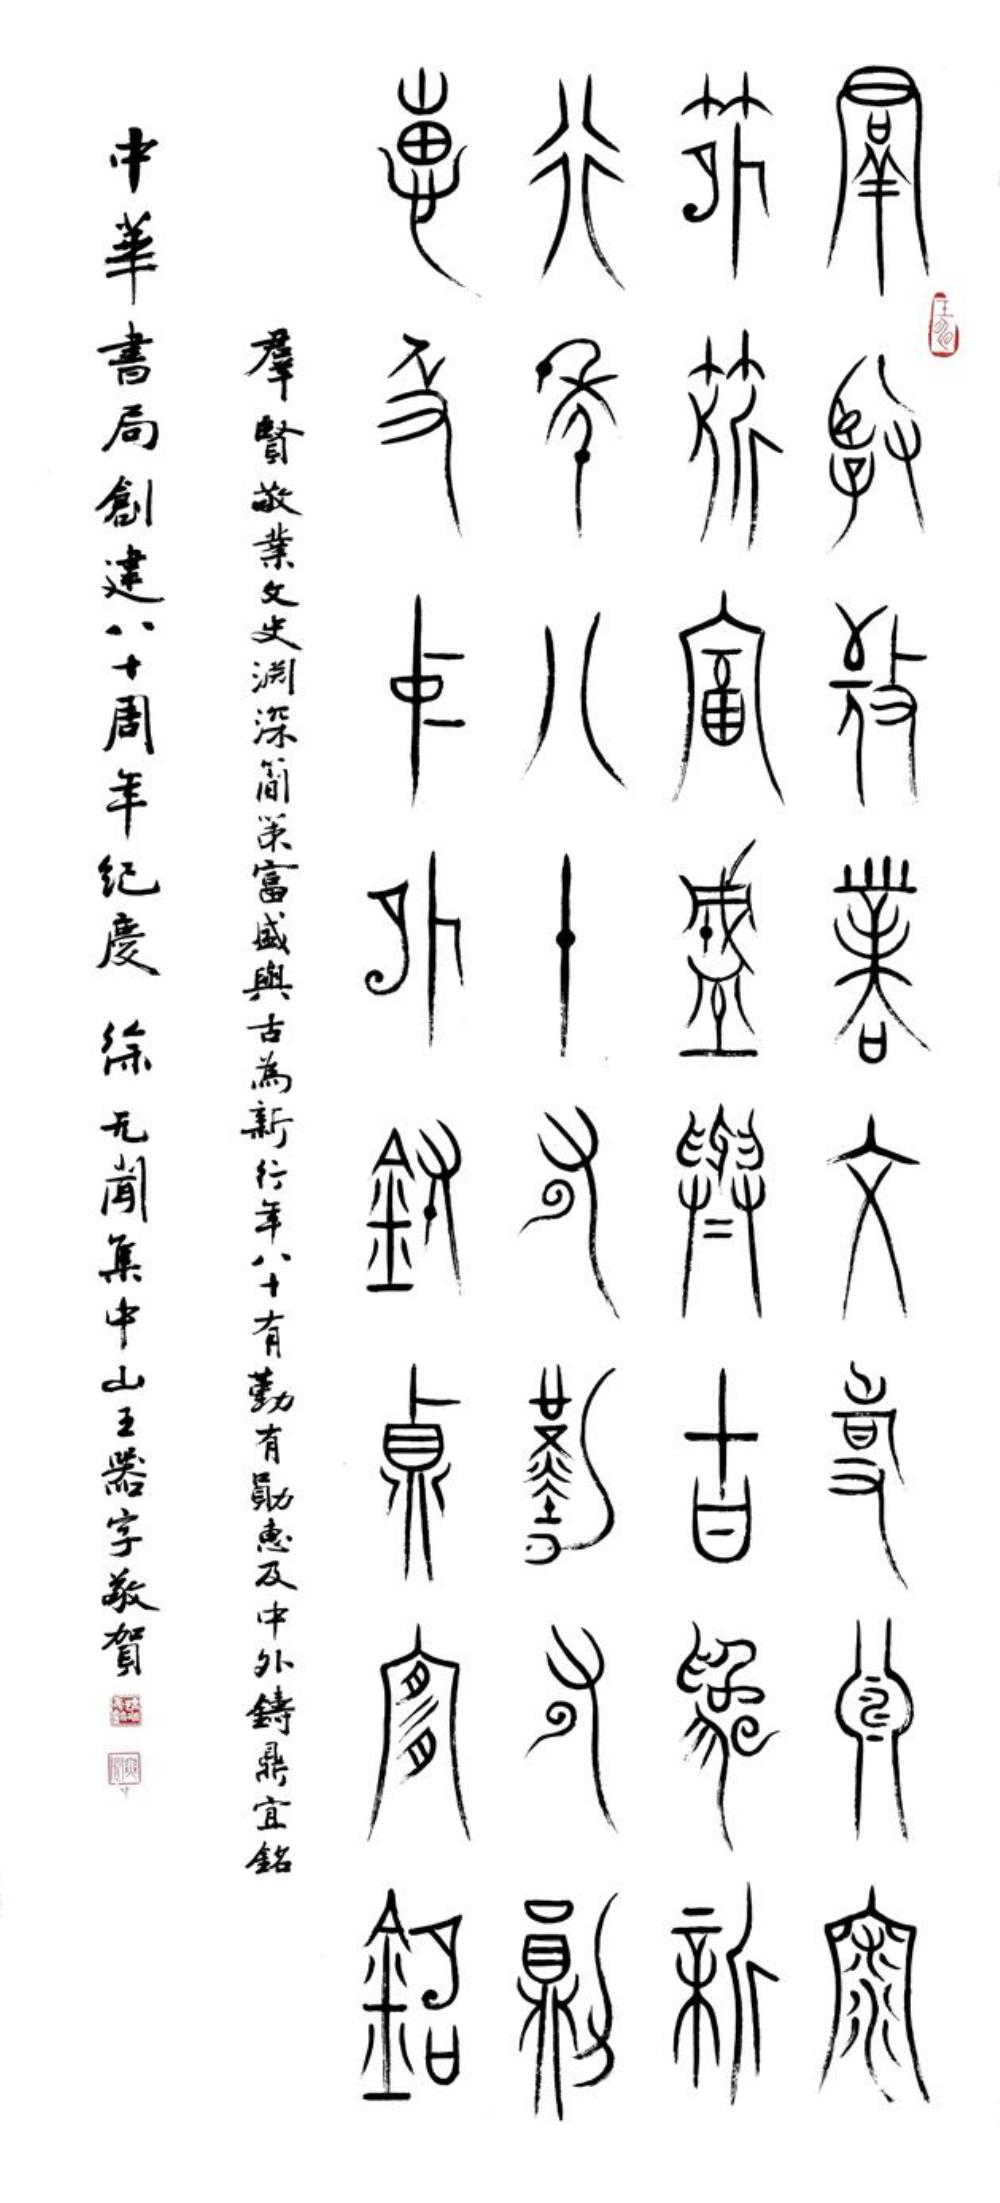 羣賢敬業文史淵深
簡策富盛與古為新
行年八十有勤有勛
惠及中外鑄鼎宜銘
羣賢敬業文史淵深簡策富盛與古為新行年八十有勤有勛惠及中外鑄鼎宜銘
中華書局創建八十周年紀慶 徐无聞集中山王器字敬賀